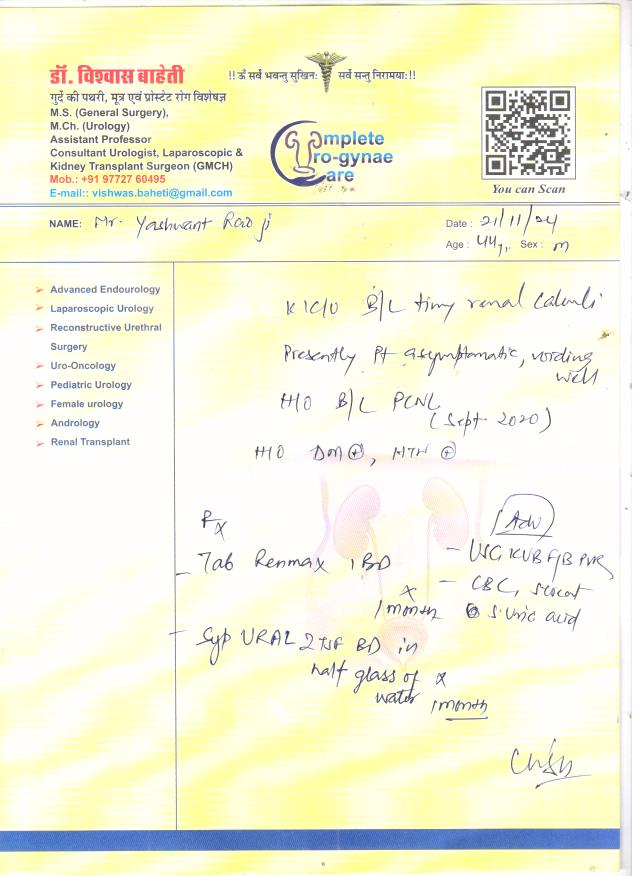 डॉ. विश्वास बाहेती
!! ॐ सर्वे भवन्तु सुखिनः सर्वे सन्तु निरामयाः !!
गुर्दे की पथरी, मूत्र एवं प्रोस्टेट रोग विशेषज्ञ
M.S. (General Surgery),
M.Ch. (Urology)
Assistant Professor
Consultant Urologist, Laparoscopic &
Kidney Transplant Surgeon (GMCH)
Mob.: +91 97727 60495
E-mail:: vishwas.baheti@gmail.com
Complete
Uro-gynae
Care
You can Scan
NAME: Mr. Yashwant Rao ji
Date : 21/11/24
Age : 44 y, Sex : m
Advanced Endourology
Laparoscopic Urology
Reconstructive Urethral
Surgery
Uro-Oncology
Pediatric Urology
Female urology
Andrology
Renal Transplant
K/C/O B/L tiny renal Calculi
Presently Pt asymptomatic, voiding
well
H/O B/L PCNL
(Sept 2020)
H/O Dm ⊕, HTN ⊕
Rx
Tab Renmax 1 BD
x
1 month
- Syp URAL 2 tsf BD in
half glass of x
water 1 month
Adv
- USG KUB F/B PVR
- CBC, S.creat
S. Uric acid